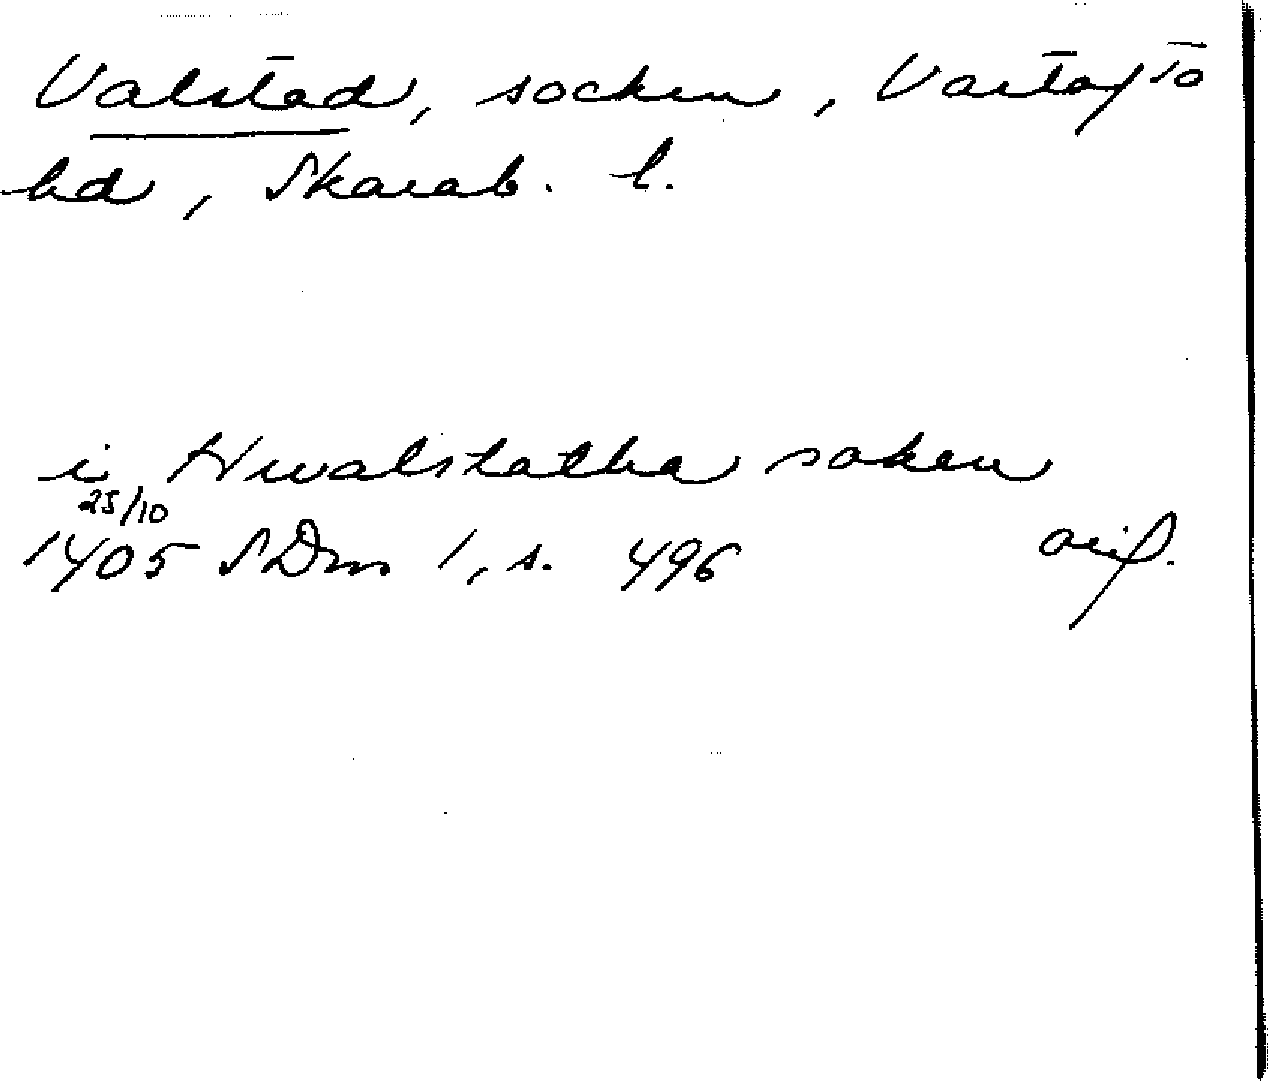 Valstad, socken, Vartofto
hd, Skarab. l.
i Hwalstatha soken
25/10
1405 SDns 1, s. 496 orig.